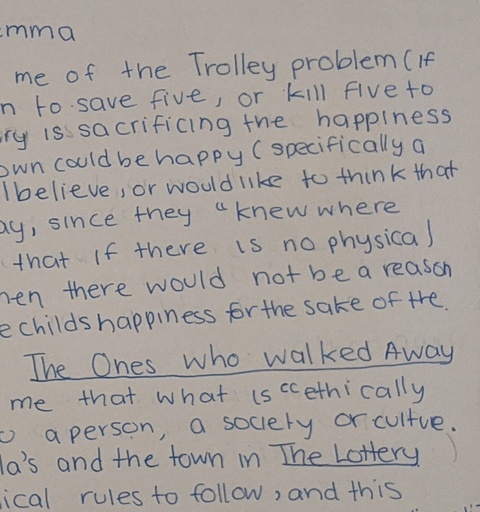 emma
me of the Trolley problem (if
n to save five, or kill five to
ry is sacrificing the happiness
own could be happy (specifically a
I believe, or would like to think that
ay, since they "knew where
that if there is no physical
hen there would not be a reason
e childs happiness for the sake of the.
The Ones who walked Away
me that what is "ethically
o a person, a society or cultue.
la's and the town in The Lottery
ical rules to follow, and this